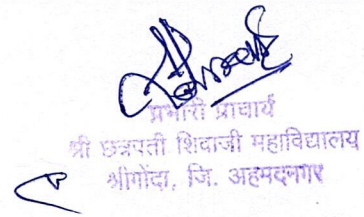 प्रभारी प्राचार्य
श्री छत्रपती शिवाजी महाविद्यालय
श्रीगोंदा, जि. अहमदनगर